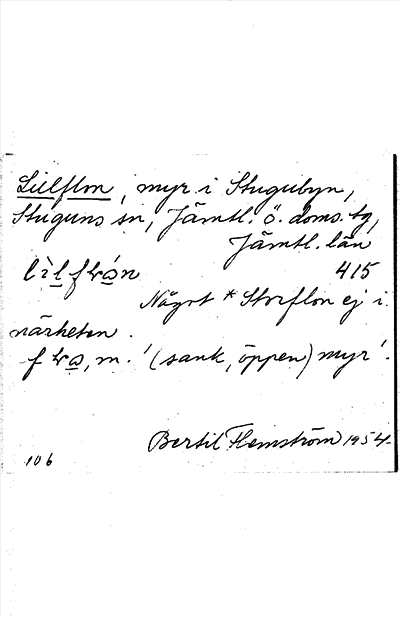 Lillflon, myr i Stugubyn,
Stuguns sn, Jämtl. ö. doms. tg,
Jämtl. län
415
Något * Storflon ej i
närheten.
m. '(sank, öppen) myr'.
Bertil Flemström 1954.
106